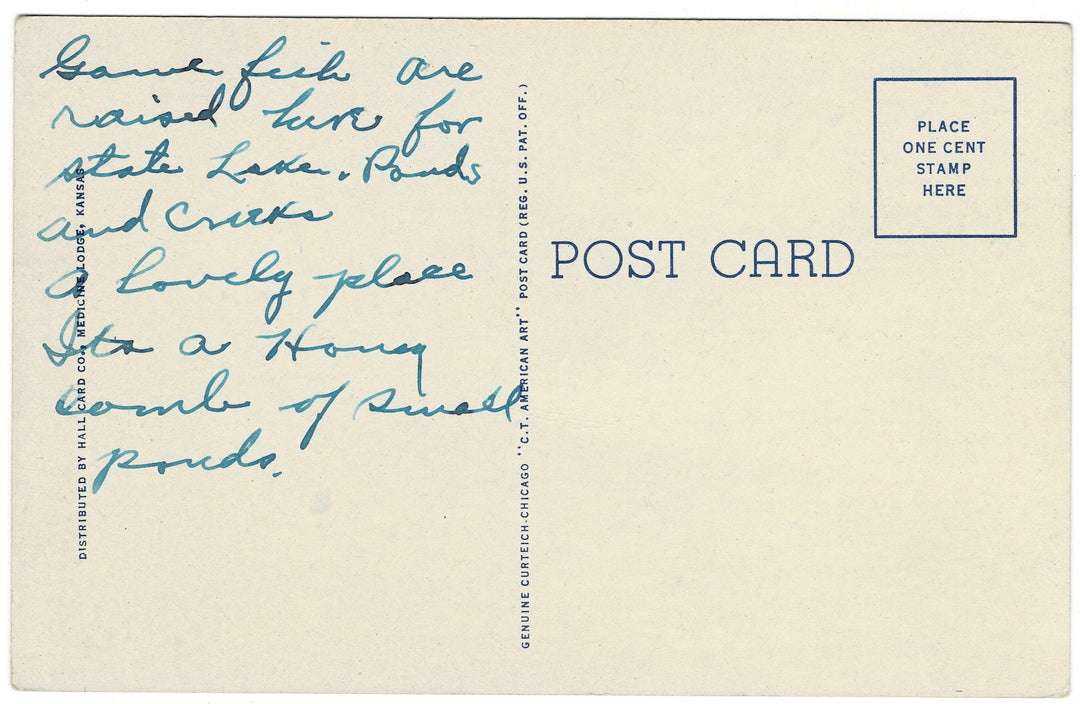 Game fish are
raised here for
state Lake. Ponds
and Creeks
A lovely place
Its a Honey
comb of small
ponds.
DISTRIBUTED BY HALL CARD CO., MEDICINE LODGE, KANSAS
GENUINE CURTEICH-CHICAGO "C.T. AMERICAN ART" POST CARD (REG. U.S. PAT. OFF.)
POST CARD
PLACE
ONE CENT
STAMP
HERE